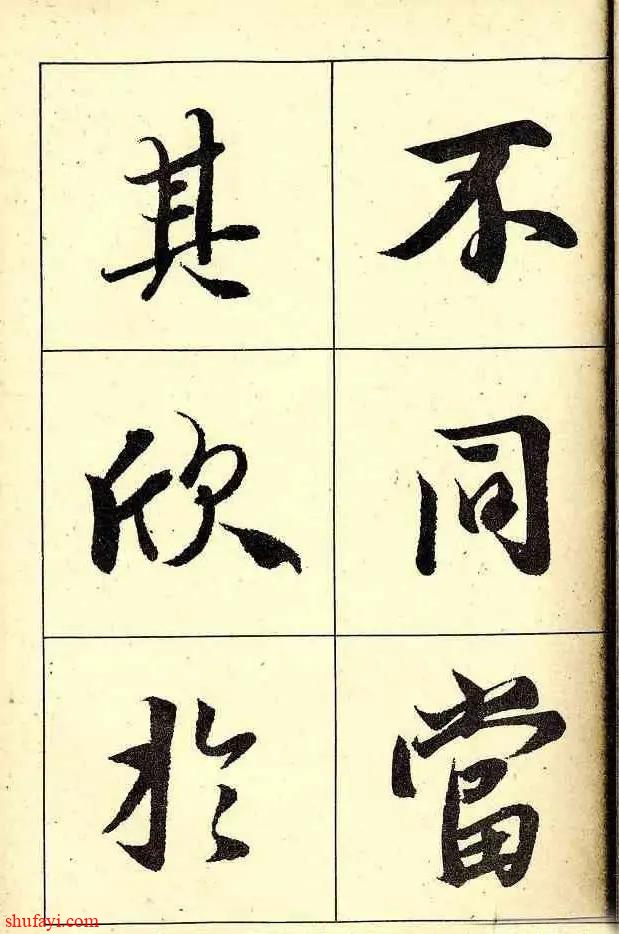 不同當
其欣於
shufayi.com